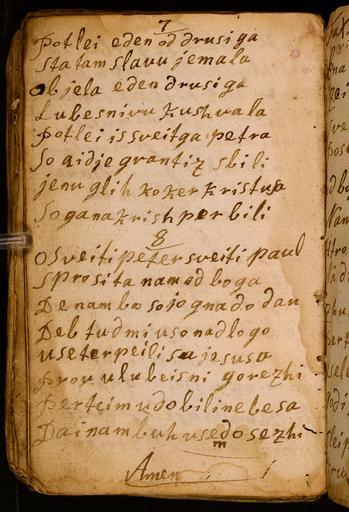 7
Potlei eden od drusiga
Sta tam slavu jemala
objela eden drusiga
Lubesnivu kushvala
Potlei is sveitga petra
So aidje grantiz sbili
jenu glih koker kristusa
So gana krish perbili
8
O sveiti peter sveiti paul
Sprosita nam od boga
De nam bo sojo gnado dau
Deb tudmi uso nadlogo
use terpeili sa jesusa
prou u lubeisni gorezhi
Perteim udobili nebesa
Dai nam buh usem dosezhi
Amen